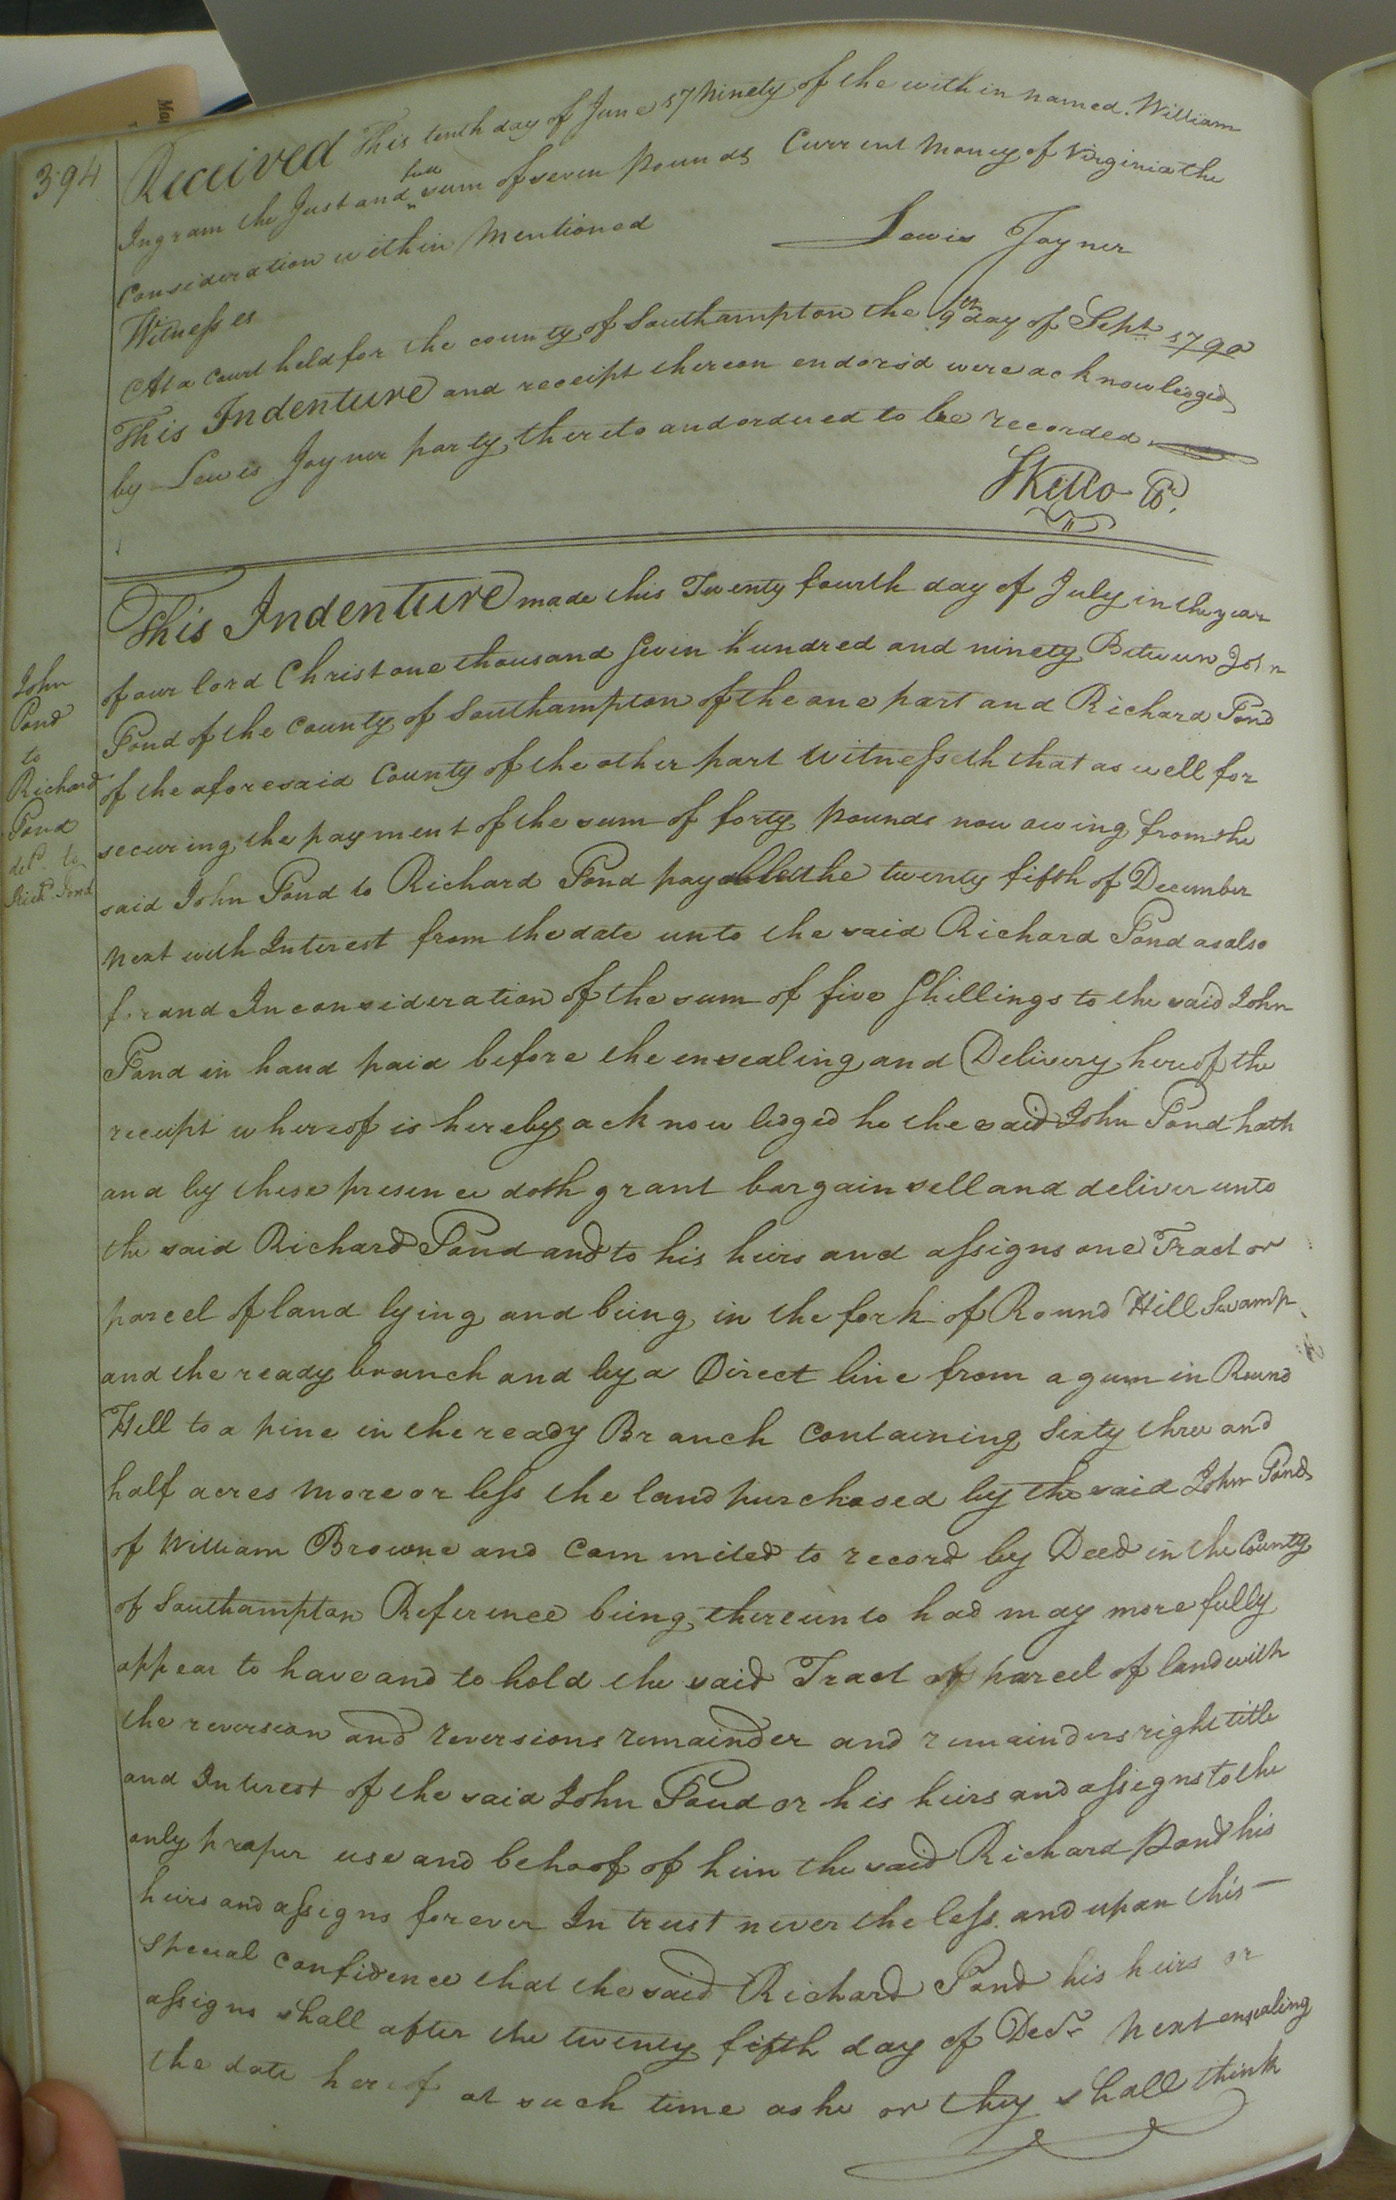 394
Received This tenth day of June 1790 Ninety of the within named William
Ingram the Just and full sum of seven pounds Current Money of Virginia the
Consideration within Mentioned
Lewis Joyner
Witnesses
At a Court held for the county of Southampton the 9th day of Sept 1790
This Indenture and receipt thereon endorsd were acknowledged
by Lewis Joyner party thereto and ordered to be recorded
John
Pond
to
Richard
Pond
deld to
Richd Pond
This Indenture made this Twenty fourth day of July in the year
of our lord Christ one thousand Seven hundred and ninety Between John
Pond of the County of Southampton of the one part and Richard Pond
of the aforesaid County of the other part Witnesseth that as well for
securing the payment of the sum of forty pounds now owing from the
said John Pond to Richard Pond payable the twenty fifth of December
Next with Interest from the date unto the said Richard Pond as also
for and In consideration of the sum of five Shillings to the said John
Pond in hand paid before the ensealing and Delivery hereof the
receipt whereof is hereby acknowledged he the said John Pond hath
and by these presence doth grant bargain sell and deliver unto
the said Richard Pond and to his heirs and assigns one Tract or
parcel of land lying and being in the fork of Round Hill Swamp
and the ready branch and by a Direct line from a gum in Round
Hill to a pine in the ready Branch Containing Sixty three and
half acres More or less the land purchased by the said John Pond
of William Browne and Commited to record by Deed in the County
of Southampton Reference being thereunto had may more fully
appear to have and to hold the said Tract or parcel of land with
the reversion and reversions remainder and remainders right title
and Interest of the said John Pond or his heirs and assigns to the
only proper use and behoof of him the said Richard Pond his
heirs and assigns forever In trust never the less and upon this
Special Confidence that the said Richard Pond his heirs or
assigns shall after the twenty fifth day of Decr Next ensealing
the date hereof at such time as he or they shall think